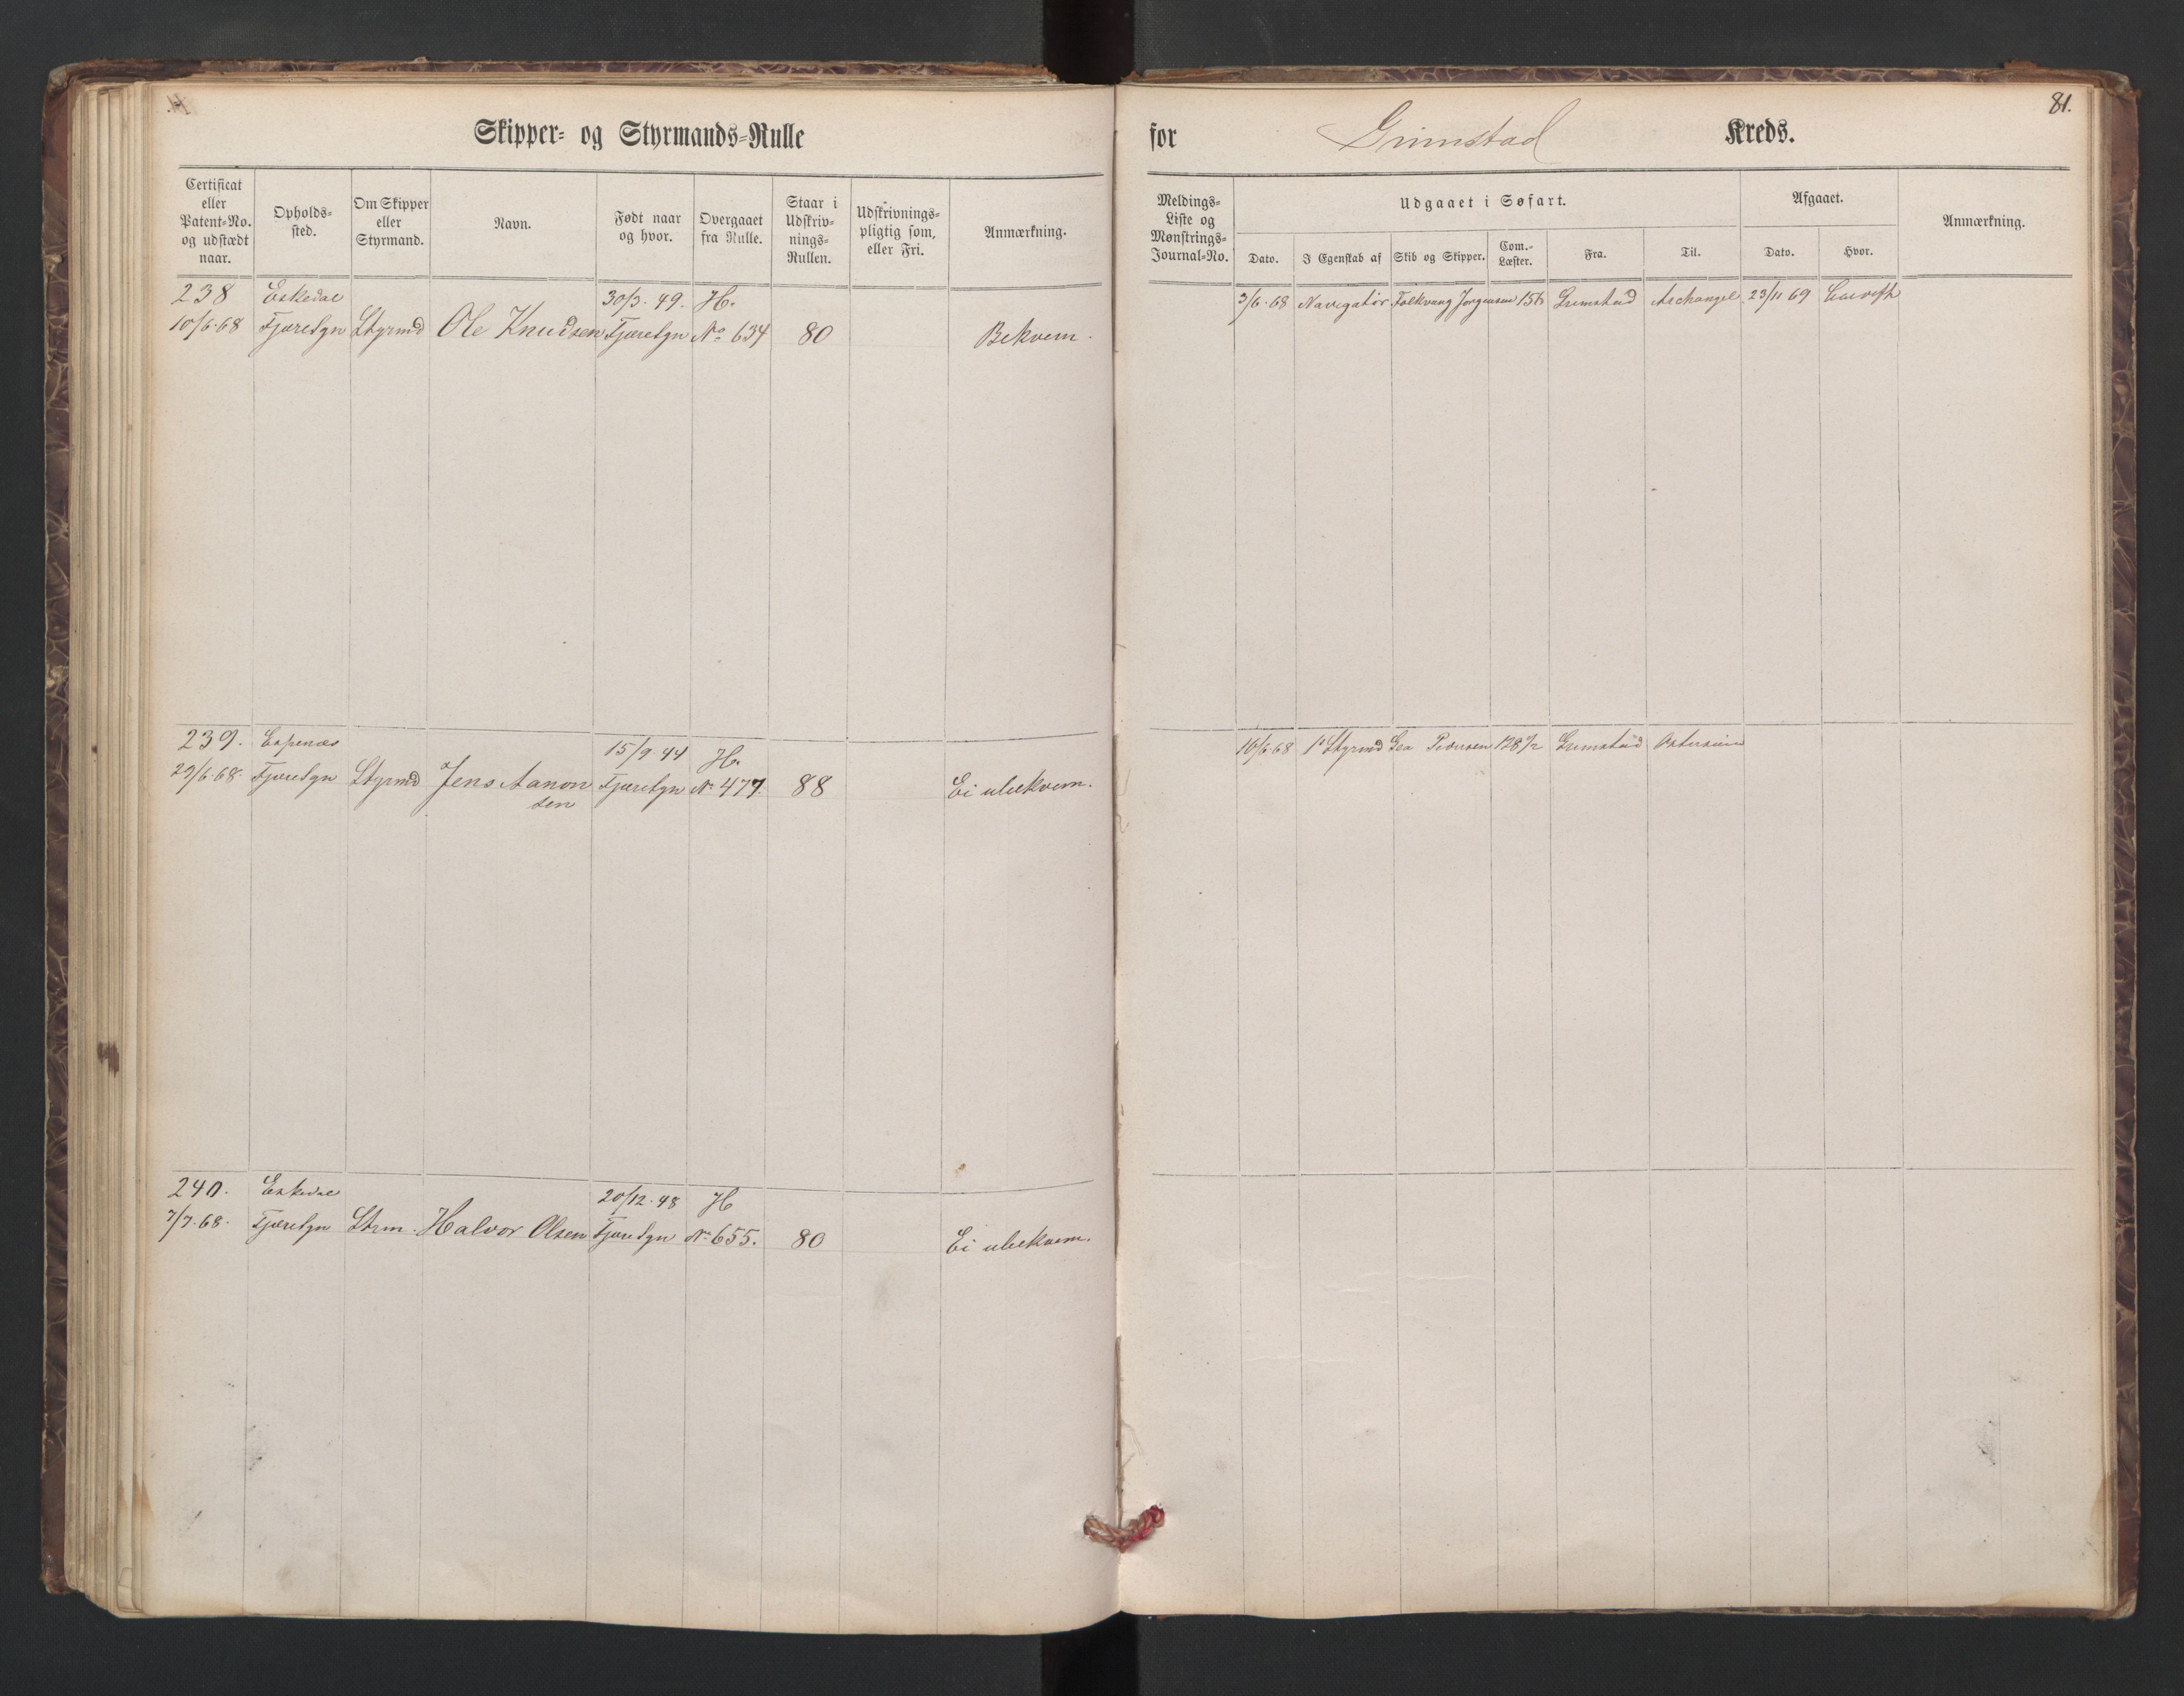 Skipper- og Styrmands-Rulle
for Grimstad Kreds.
81.
Certificat eller Patent-No. og udstædt naar.
Opholds-sted.
Om Skipper eller Styrmand.
Navn.
Født naar og hvor.
Overgaaet fra Rulle.
Staar i Udskriv-nings-Rullen.
Udskrivnings-pligtig som, eller Fri.
Anmærkning.
Meldings-Liste og Mønstrings-Journal-No.
Udgaaet i Søfart.
Dato.
I Egenskab af
Skib og Skipper.
Com.-Læster.
Fra.
Til.
Afgaaet.
Dato.
Hvor.
Anmærkning.
238 Eskedal 30/3. 49. H.
10/6.68 Fjære Sgn Styrmd Ole Knudsen Fjære Sgn No 634 80 Bekvem.
3/6.68 Navigatør Folkvang Jørgensen 156 Grimstad Archangel 23/11 69
239. Espenæs 15/9.44 H.
29/6.68. Fjære Sgn Styrmd Jens Aanon Fjære Sgn No 477. 88 Ei ubekvem.
sen
16/6.68 1e Styrmd Gea Pedersen 128 1/2 Grimstad Østersøen
240. Eskedal 20/12.48 H
7/7.68. Fjære Sgn Strm. Halvor Olsen Fjære Sgn No 655. 80 Ei ubekvem.